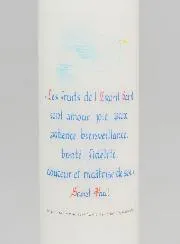 «Les fruits de l'Esprit Saint
sont amour joie paix
patience bienveillance
bonté fidélité
douceur et maîtrise de soi»
Saint Paul